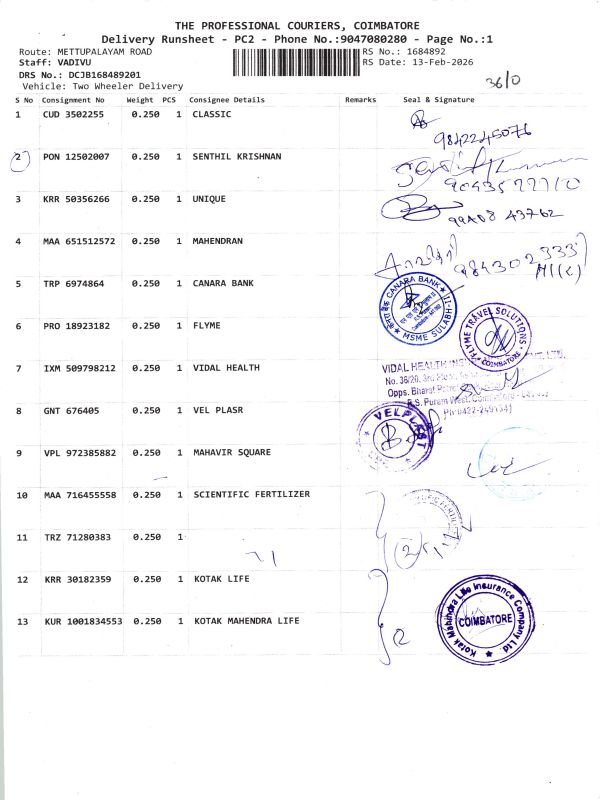 THE PROFESSIONAL COURIERS, COIMBATORE
Delivery Runsheet - PC2 - Phone No.:9047080280 - Page No.:1
Route: METTUPALAYAM ROAD RS No.: 1684892
Staff: VADIVU RS Date: 13-Feb-2026
DRS No.: DCJB168489201
Vehicle: Two Wheeler Delivery
36/0
S No Consignment No Weight PCS Consignee Details Remarks Seal & Signature
1 CUD 3502255 0.250 1 CLASSIC
9842245076
2 PON 12502007 0.250 1 SENTHIL KRISHNAN
3 KRR 50356266 0.250 1 UNIQUE
4 MAA 651512572 0.250 1 MAHENDRAN
5 TRP 6974864 0.250 1 CANARA BANK
CANARA BANK
MSME SULABH
6 PRO 18923182 0.250 1 FLYME
FLYME TRAVEL SOLUTIONS
COIMBATORE
7 IXM 509798212 0.250 1 VIDAL HEALTH
VIDAL HEALTH
No. 36/20, 3rd
Opps. Bharat
R.S. Puram West,
8 GNT 676405 0.250 1 VEL PLASR
VELPLAST
9 VPL 972385882 0.250 1 MAHAVIR SQUARE
10 MAA 716455558 0.250 1 SCIENTIFIC FERTILIZER
11 TRZ 71280383 0.250 1
12 KRR 30182359 0.250 1 KOTAK LIFE
13 KUR 1001834553 0.250 1 KOTAK MAHENDRA LIFE
Kotak Mahindra Life Insurance Company Ltd.
COIMBATORE